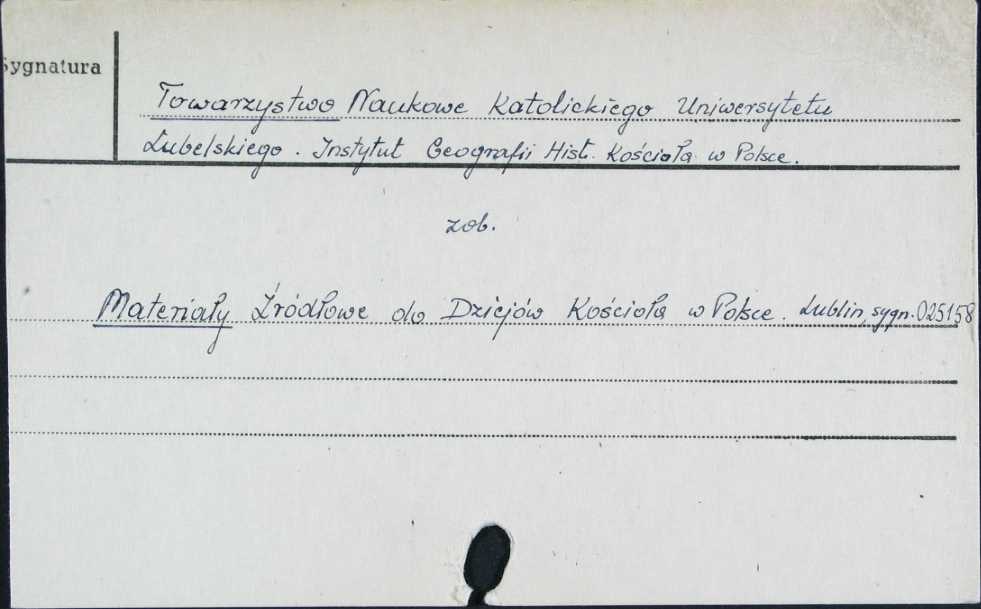 Sygnatura
Towarzystwo Naukowe Katolickiego Uniwersytetu
Lubelskiego. Instytut Geografii Hist. Kościoła w Polsce.
zob.
Materiały Źródłowe do Dziejów Kościoła w Polsce. Lublin, sygn. 025158